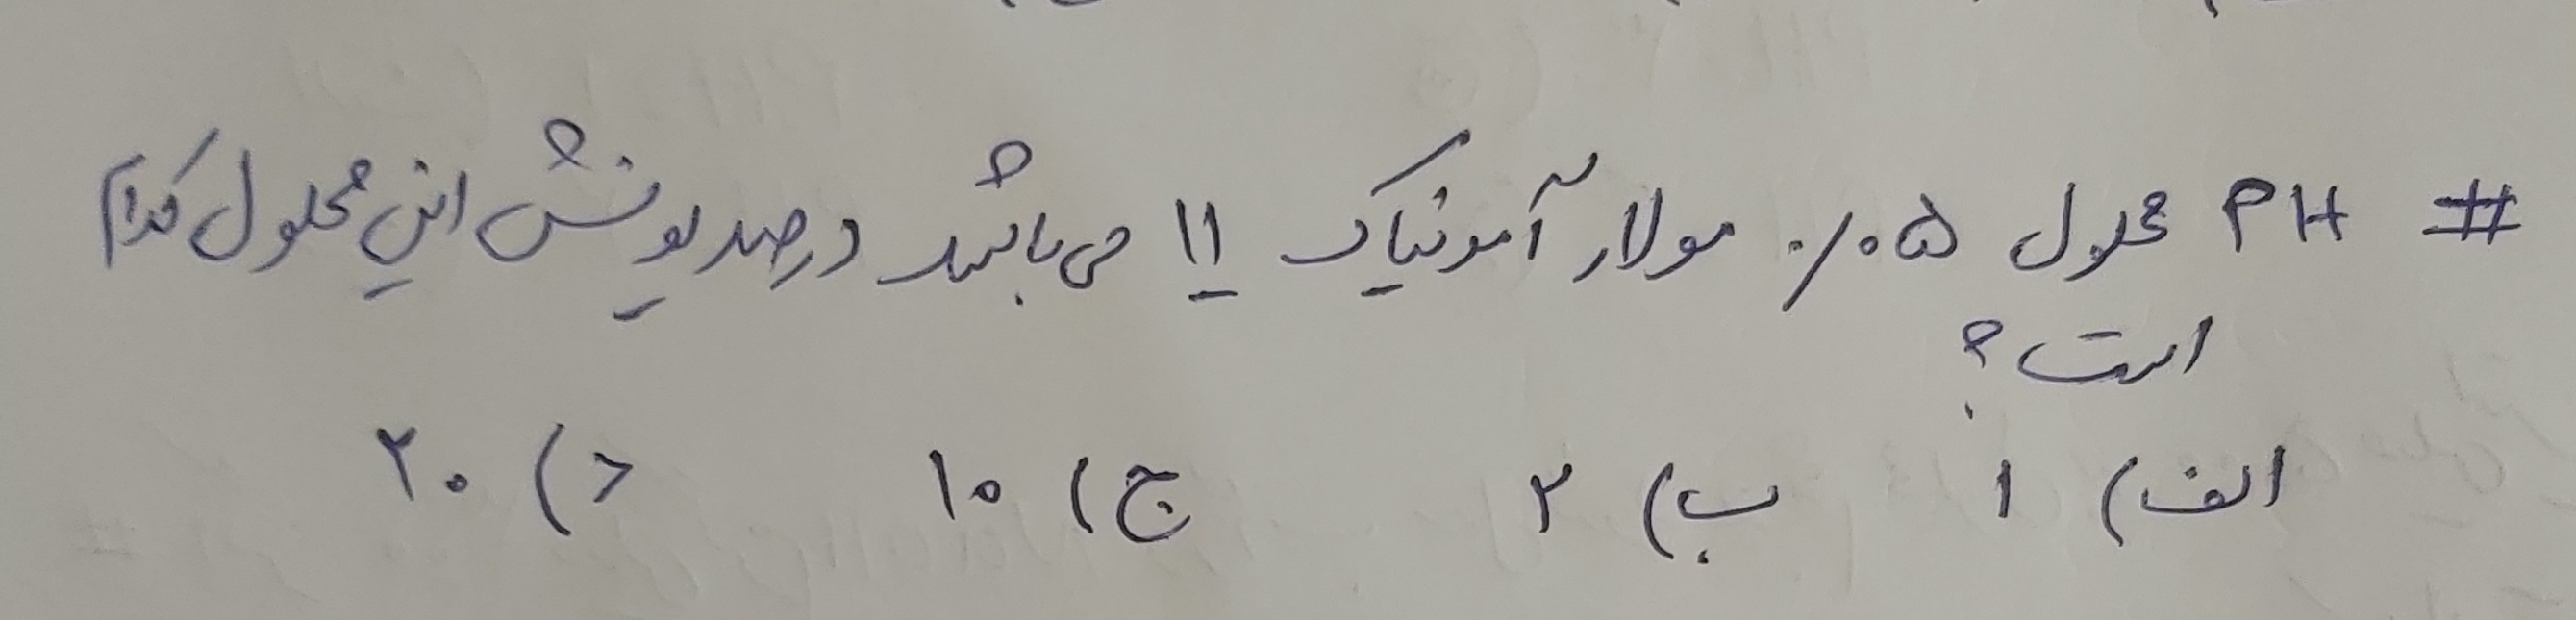 # PH محلول ۰/۰۵ مولار آمونیاک ۱۱ می باشد درصد یونش این محلول کدام
است؟
الف) ۱ ب) ۲ ج) ۱۰ د) ۲۰